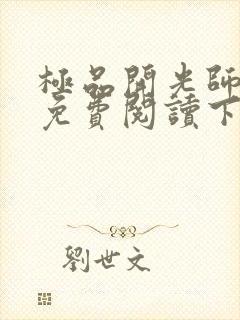 極品開光師
免費閱讀下
劉世文